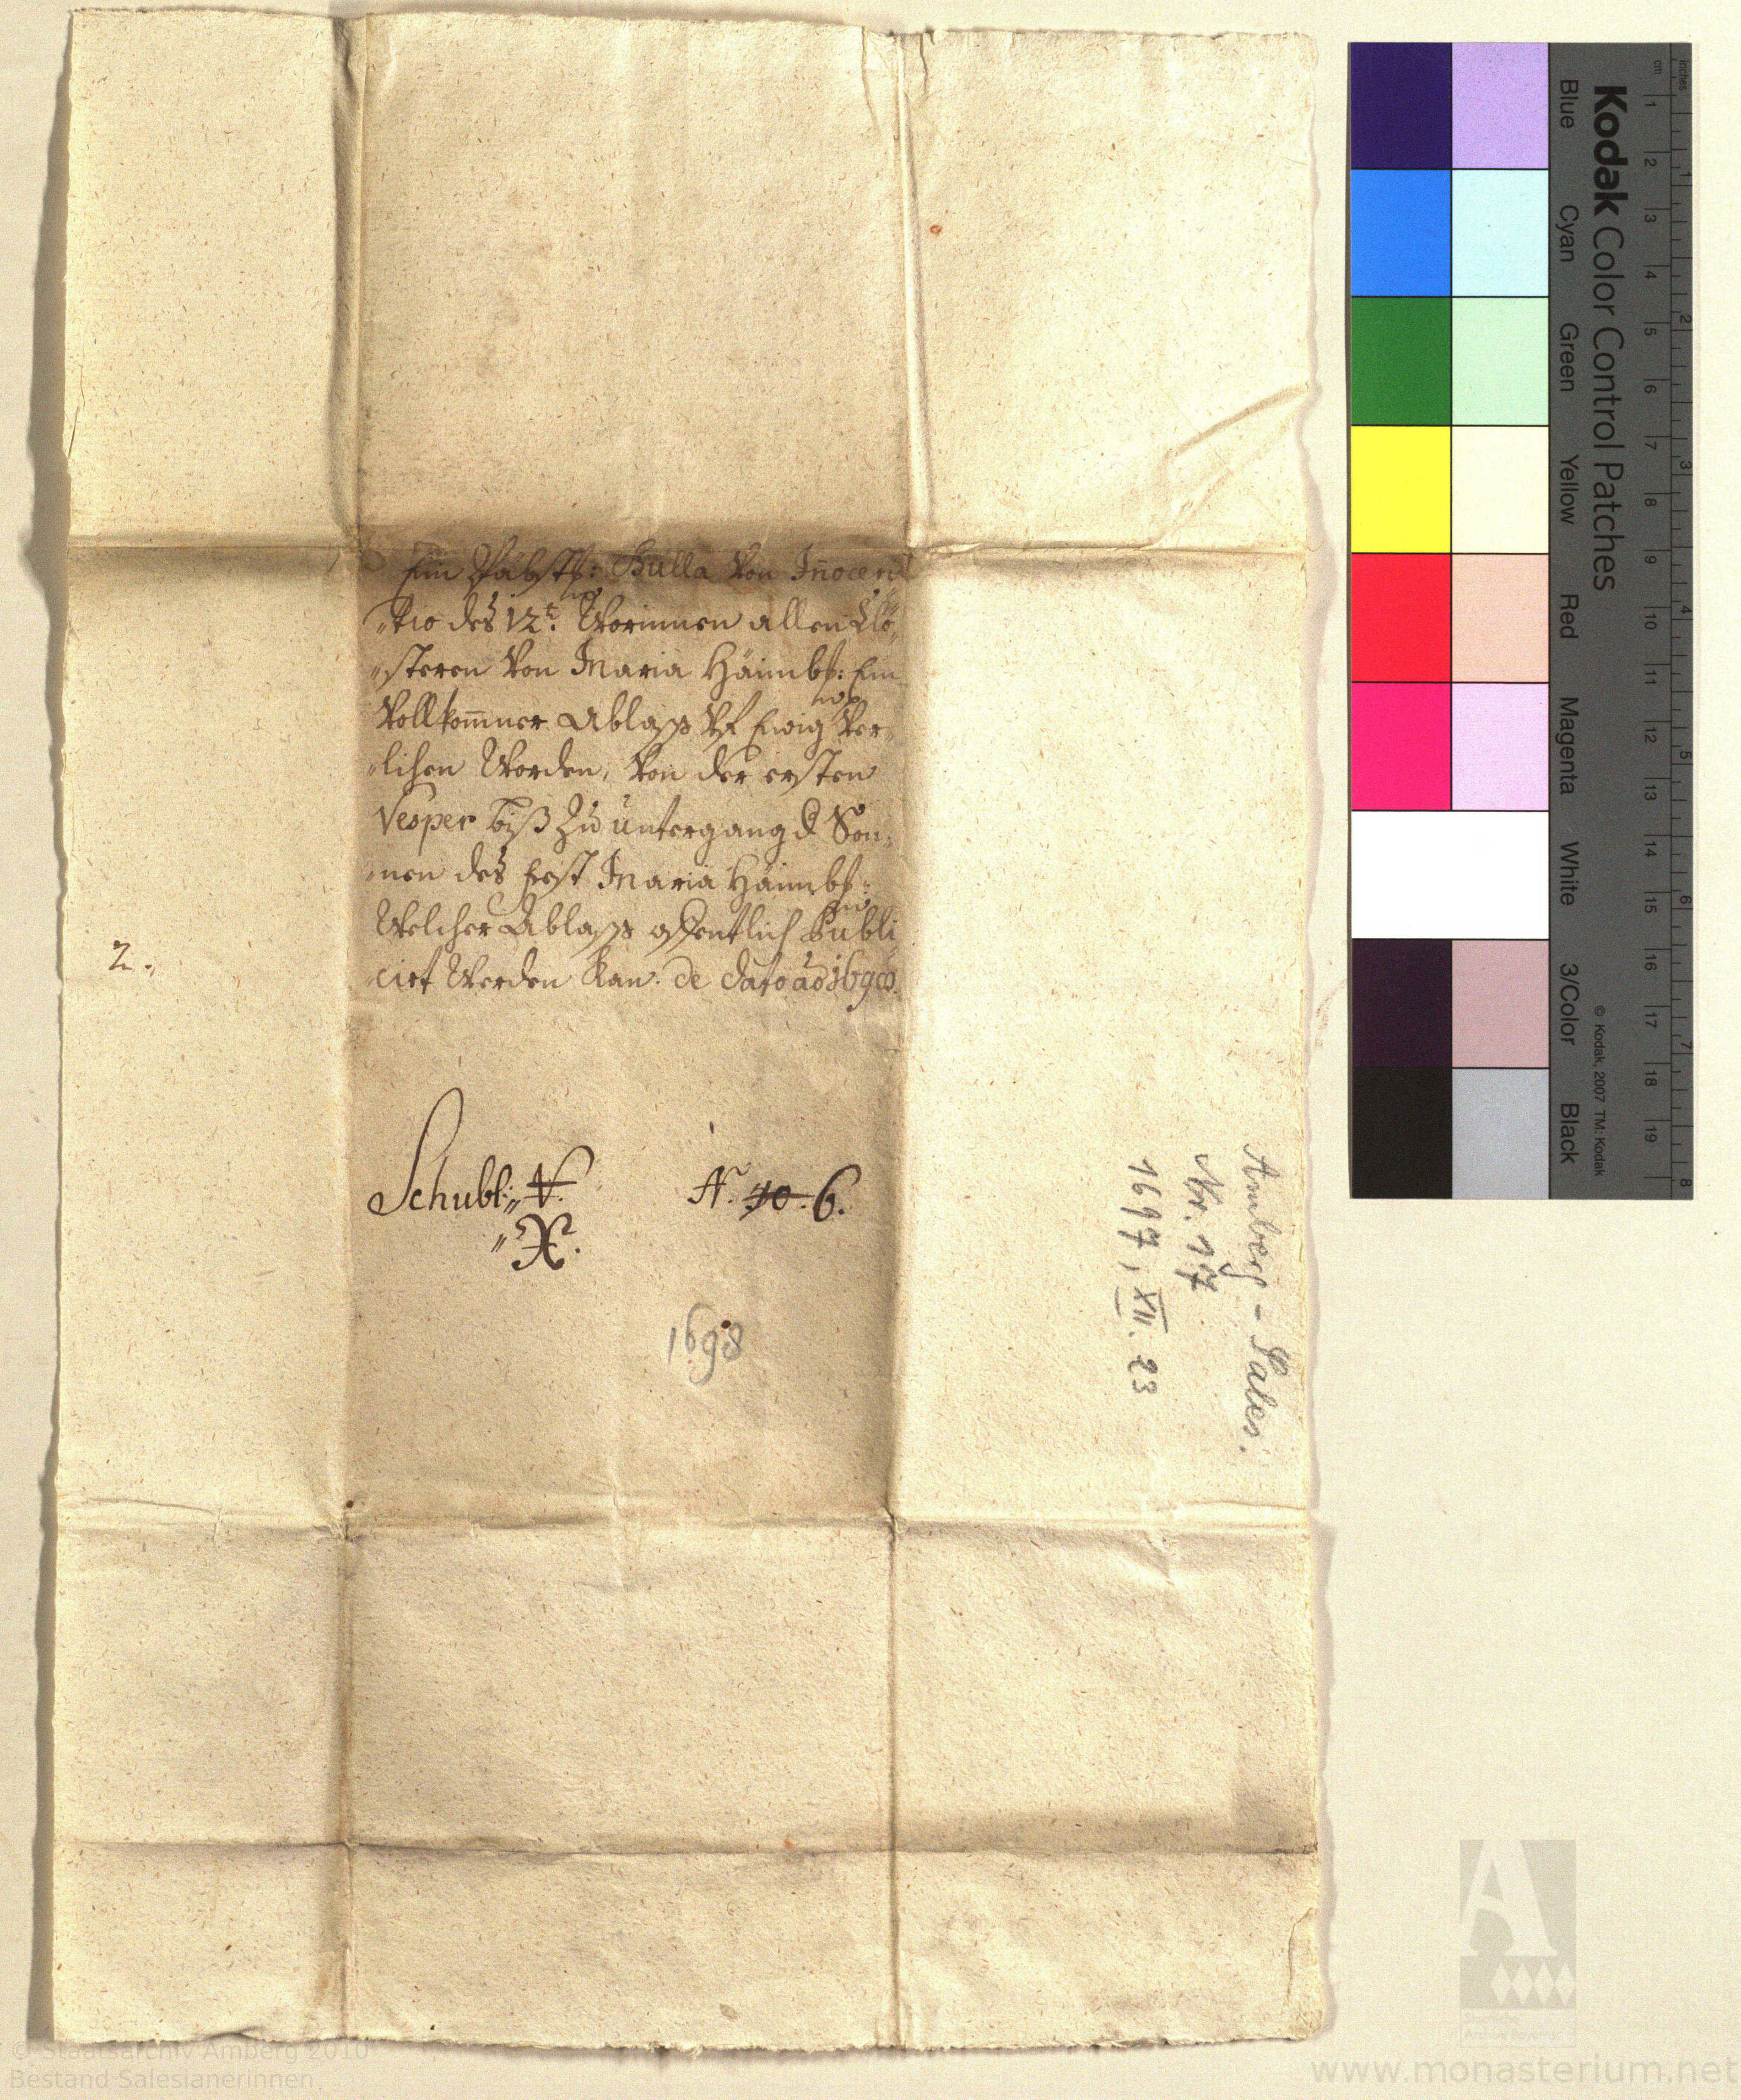 Ein Päbstl: Bulla Von Jnnocen
„tio des 12t. Worinnen allen Clö„
„steren Von Maria Häimbs: Ein
Vollkom̄ner Ablass Vf Ewig Ver„
„lihen Worden, Von der ersten
Vesper biß Zu untergang d Son„
„nen des Fest Maria Häimbs:
Welcher Ablass offentlich Publi
cirt Werden Kan. de dato ao 1698.
2.
Schubl: „V.
„X.
N. 10. 6.
1698
Amberg - Sales.
Nr. 17
1697, XII. 23
Kodak Color Control Patches
Blue Cyan Green Yellow Red Magenta White 3/Color Black
© Kodak, 2007 TM: Kodak
cm 1 2 3 4 5 6 7 8 9 10 11 12 13 14 15 16 17 18 19
inches 1 2 3 4 5 6 7 8
© Staatsarchiv Amberg 2010
Bestand Salesianerinnen
www.monasterium.net